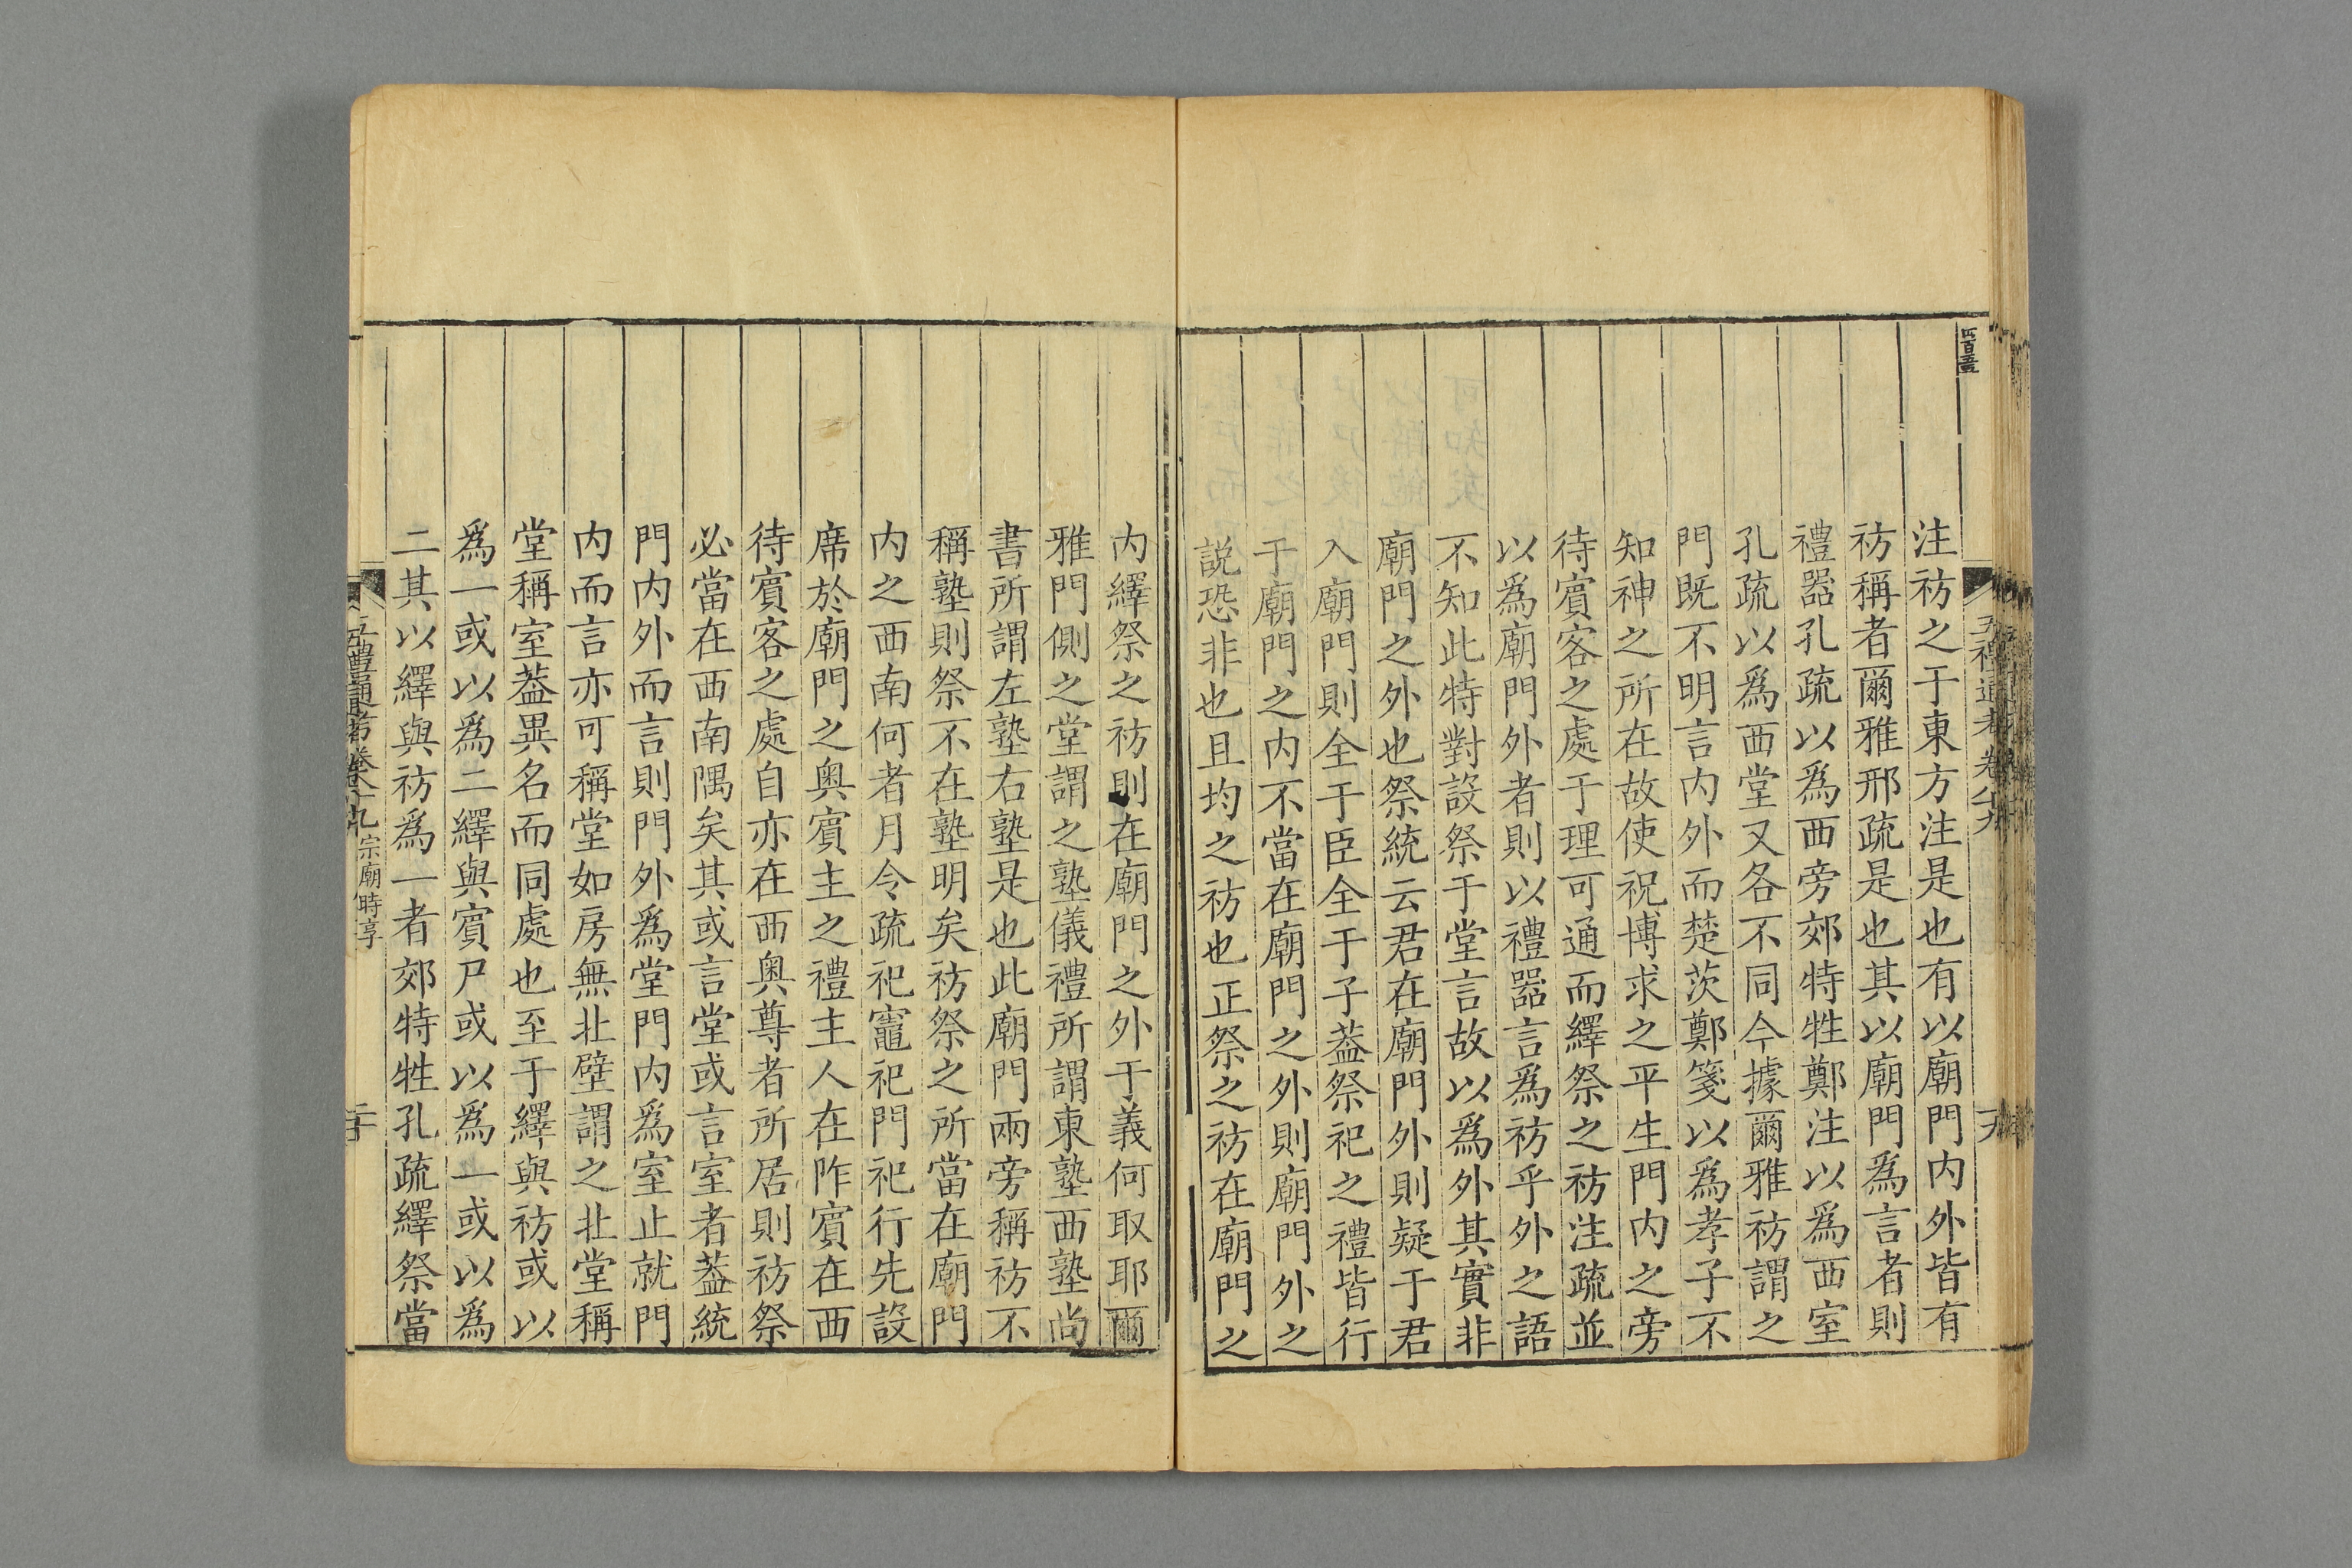 注祊之于東方注是也有以廟門内外皆有
祊稱者爾雅邢疏是也其以廟門爲言者則
禮器孔疏以爲西旁郊特牲鄭注以爲西室
孔疏以爲西堂又各不同今據爾雅祊謂之
門既不明言内外而楚茨鄭箋以爲孝子不
知神之所在故使祝博求之平生門内之旁
待賓客之處于理可通而繹祭之祊注疏並
以爲廟門外者則以禮器言爲祊乎外之語
不知此特對設祭于堂言故以爲外其實非
廟門之外也祭統云君在廟門外則疑于君
入廟門則全于臣全于子葢祭祀之禮皆行
于廟門之内不當在廟門之外則廟門外之
説恐非也且均之祊也正祭之祊在廟門之
内繹祭之祊則在廟門之外于義何取耶爾
雅門側之堂謂之塾儀禮所謂東塾西塾尚
書所謂左塾右塾是也此廟門兩旁稱祊不
稱塾則祭不在塾明矣祊祭之所當在廟門
内之西南何者月令疏祀竈祀門祀行先設
席於廟門之奥賓主之禮主人在阼賓在西
待賓客之處自亦在西奥尊者所居則祊祭
必當在西南隅矣其或言堂或言室者葢統
門内外而言則門外爲堂門内爲室止就門
内而言亦可稱堂如房無北壁謂之北堂稱
堂稱室葢異名而同處也至于繹與祊或以
爲一或以爲二繹與賓尸或以爲一或以爲
二其以繹與祊爲一者郊特牲孔疏繹祭當
五禮通考卷八十九 宗廟時享 二十